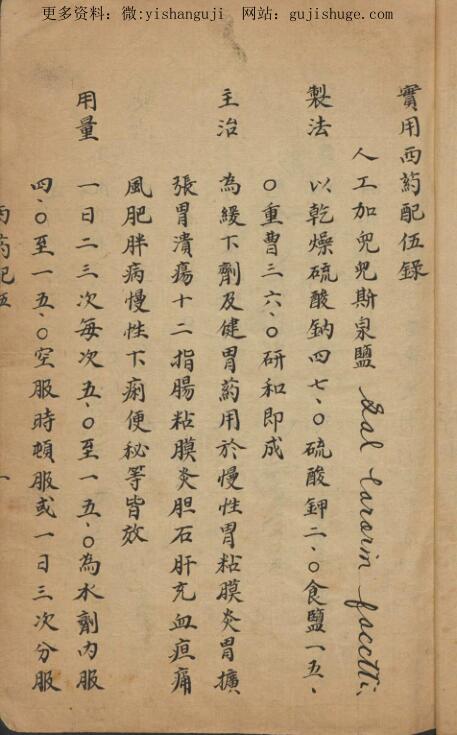 更多资料：微:yishanguji 网站：gujishuge.com
實用西葯配伍錄
人工加兒兒斯泉鹽 Sal Carorin facctti;
製法 以乾燥硫酸鈉四七、〇硫酸鉀二、〇食鹽一五、
〇重曹三六、〇研和即成
主治 為緩下劑及健胃葯用於慢性胃粘膜炎胃擴
張胃潰瘍十二指腸粘膜炎胆石肝充血疸痛
風肥胖病慢性下痢便秘等皆放
用量 一日二三次每次五、〇至一五、〇為水劑內服
四、〇至一五、〇空服時頓服或一日三次分服
西葯配伍 一